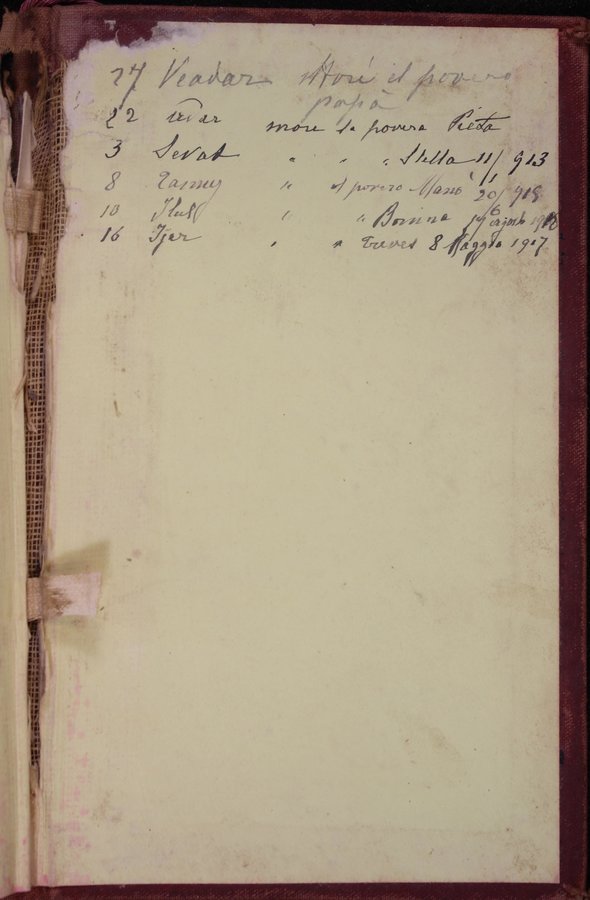 27 Veadar Morì il povero
papà
22 Adar morì la povera Pieta
3 Sevat " " " Stella 11/1 913
8 Tamuz " il povero 20/6 918
10 Ilul " " Bonina 1918
16 Ijar " " Treves 8 Maggio 1917